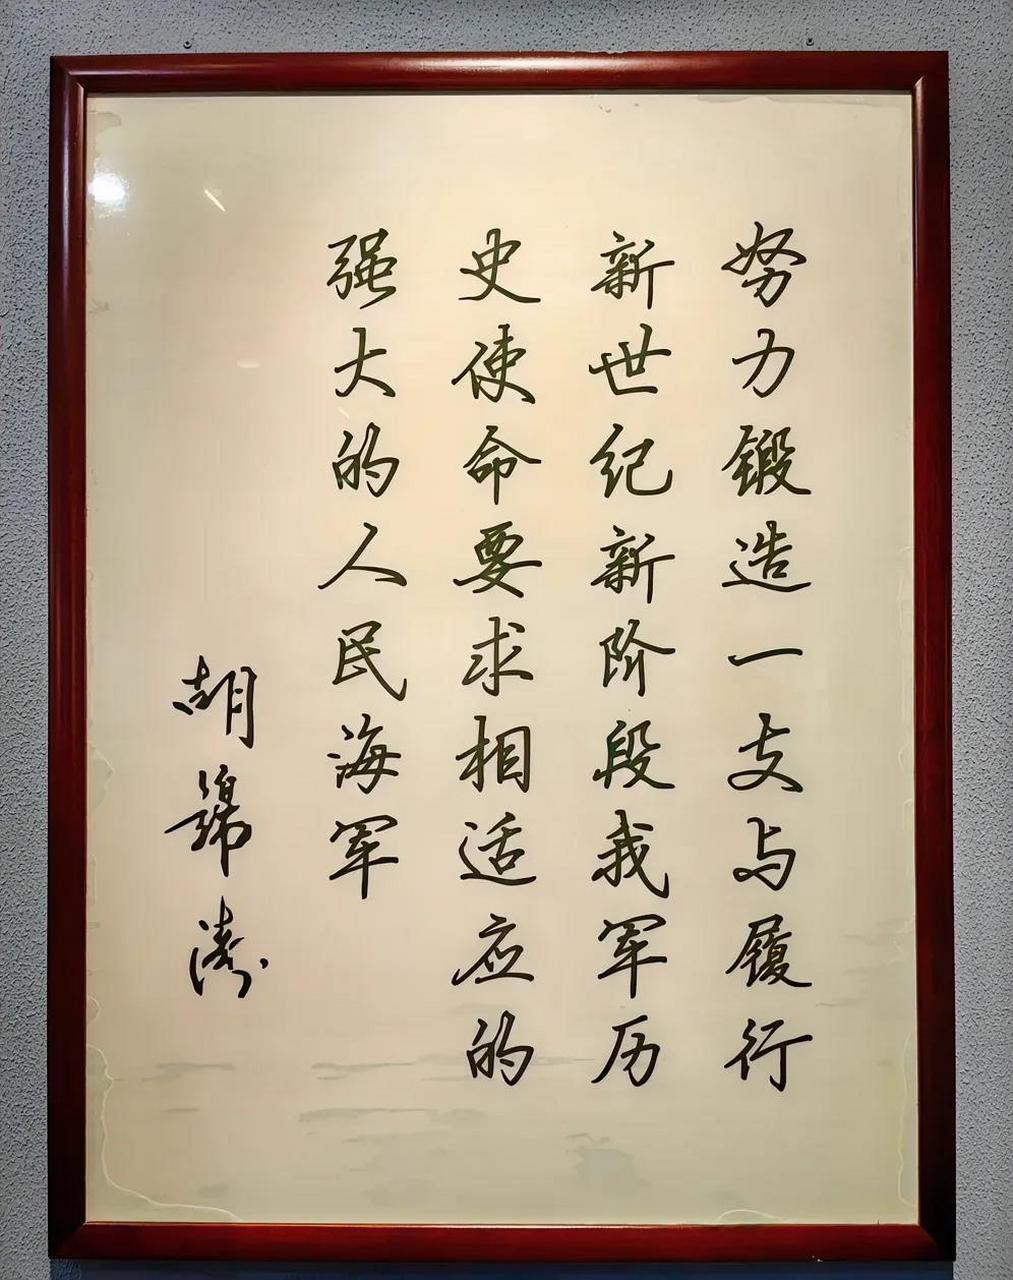 努力锻造一支与履行
新世纪新阶段我军历
史使命要求相适应的
强大的人民海军
胡锦涛